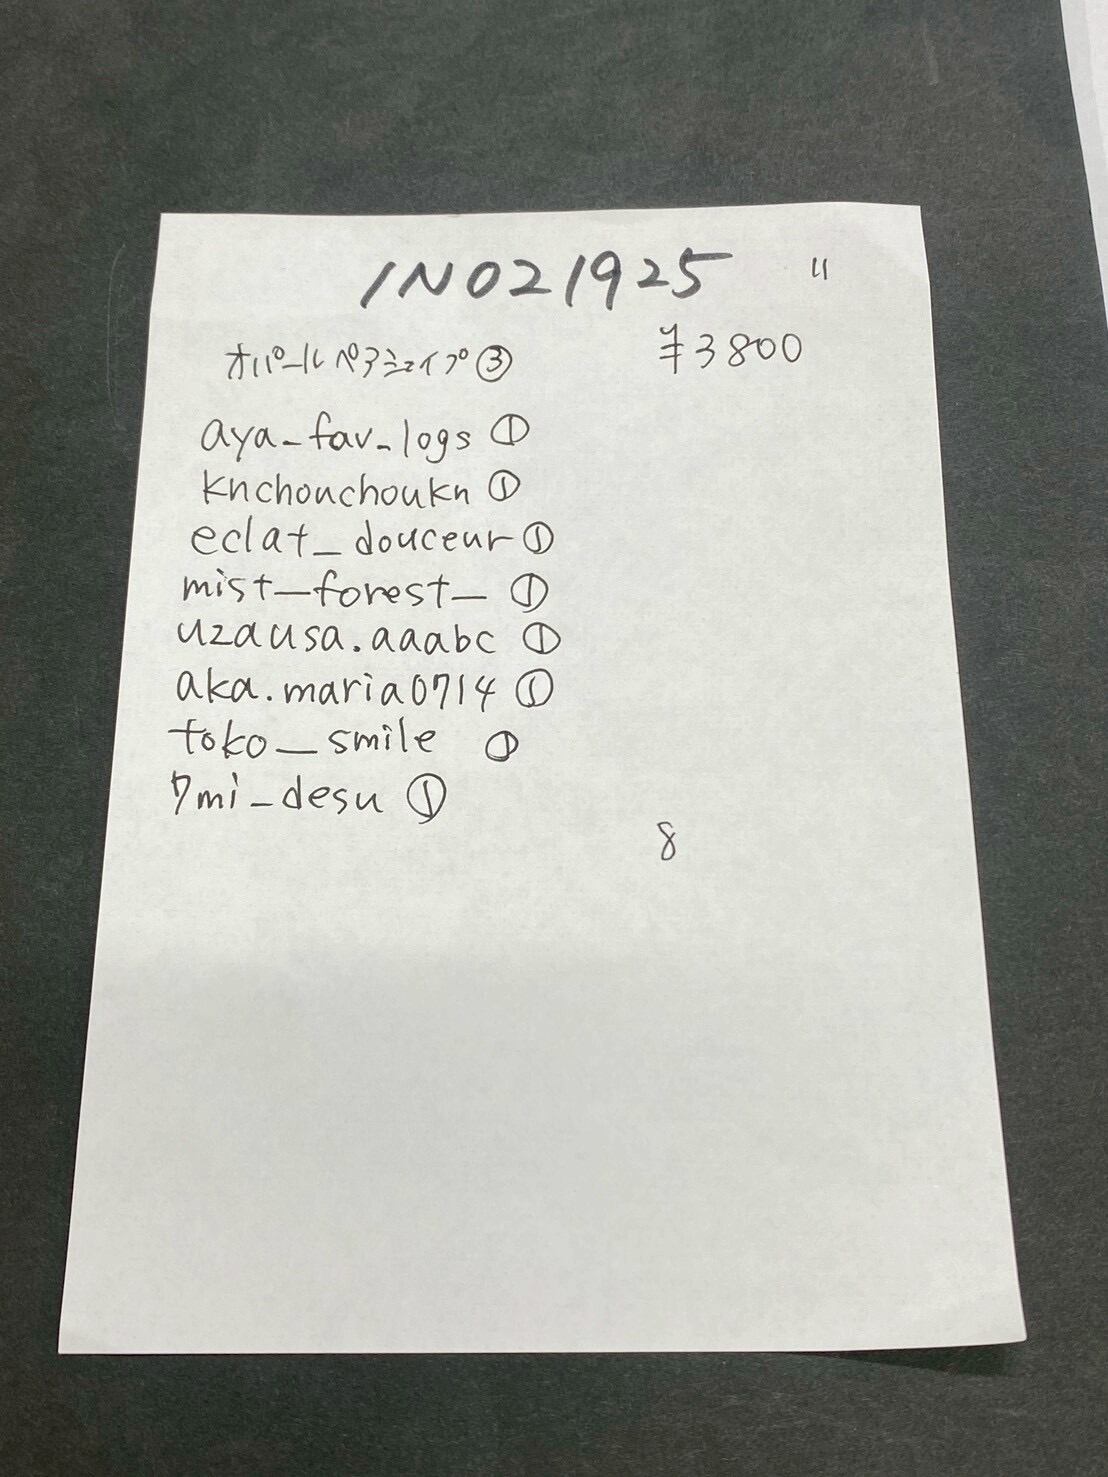 INO21925 11
オパールペアシェイプ③ ¥3800
aya_fav_logs ①
knchouchoukn ①
eclat_douceur ①
mist_forest_ ①
uzausa.aaabc ①
aka.maria0714 ①
toko_smile ①
7mi_desu ①
8